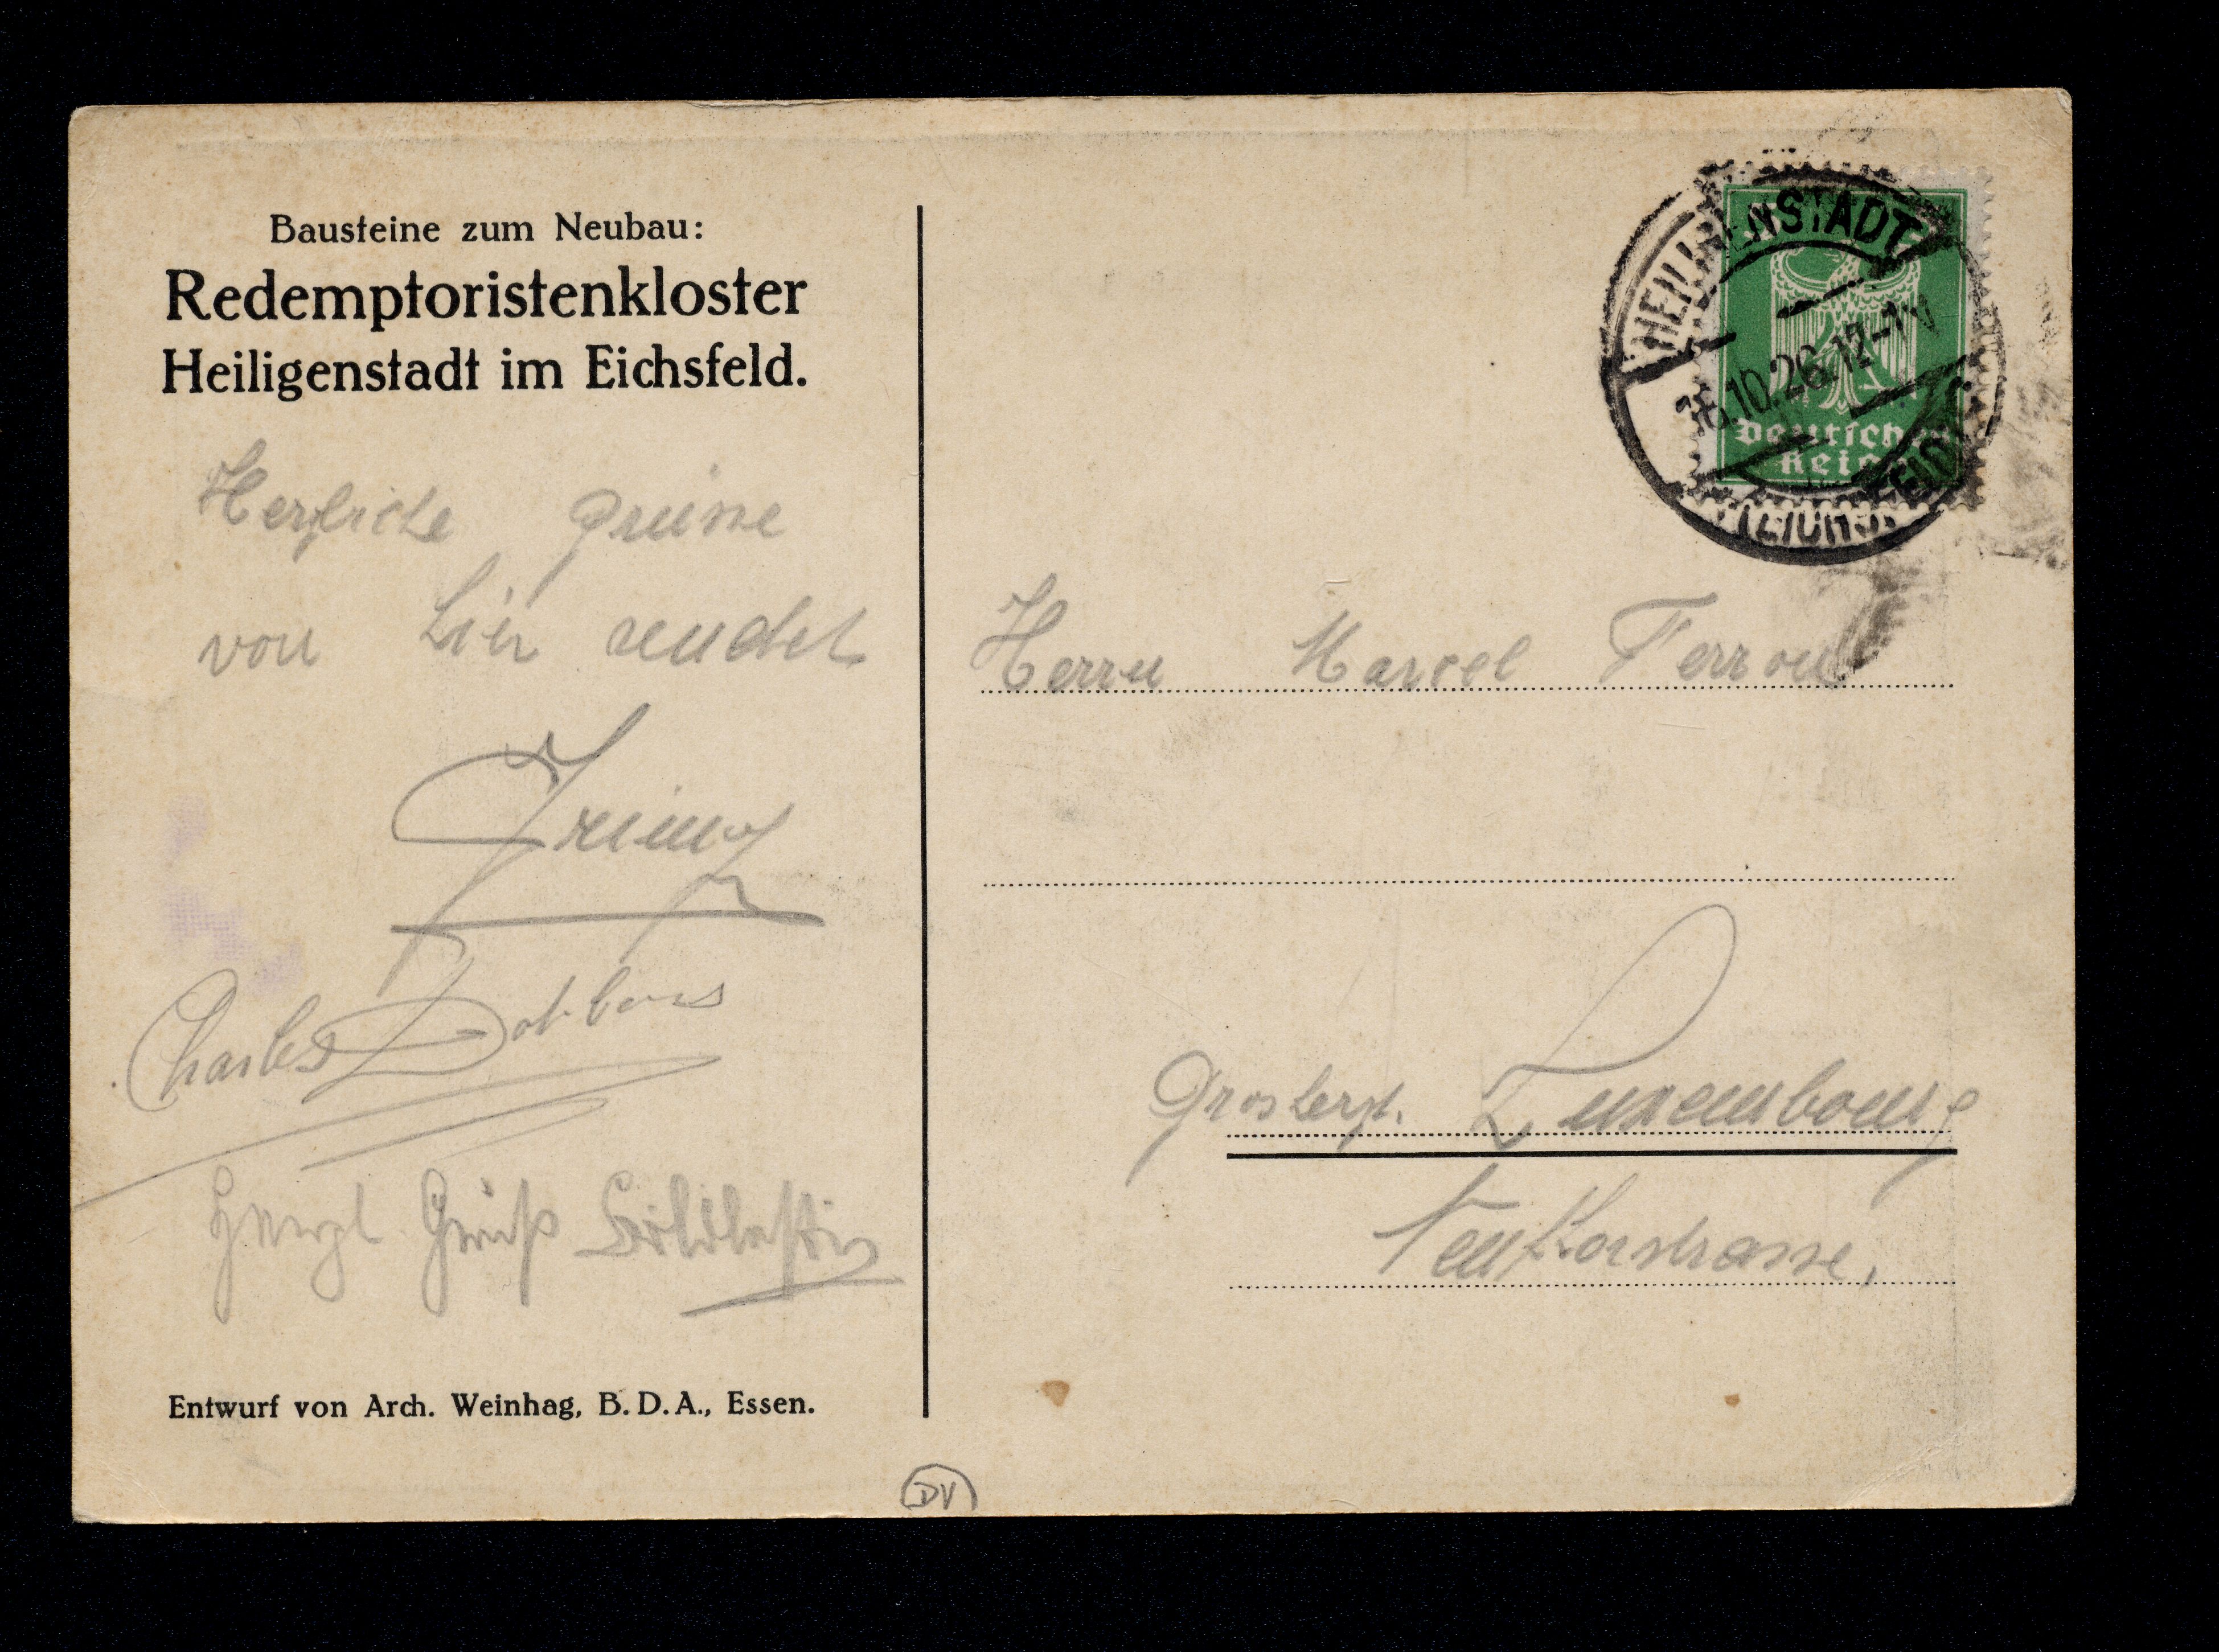 Bausteine zum Neubau:
Redemptoristenkloster
Heiligenstadt im Eichsfeld.
Herzliche Grüsse
von hier sendet
Charles
Herzl Gruß
Entwurf von Arch. Weinhag, B.D.A., Essen.
HEILIGENSTADT
.10.26.12-1
(EICHSFELD)
Deutsches
Reich
Herrn Marcel
Grosherzt. Luxembourg
DV